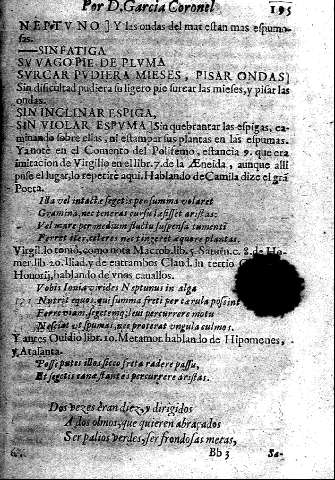 Por D. Garcia Coronel 195
NEPTVNO] Y las ondas del mar estan mas espumo-
sas.
—SIN FATIGA
SV VAGO PIE DE PLVMA
SVRCAR PVDIERA MIESES, PISAR ONDAS]
Sin dificultad pudiera su ligero pie surcar las mieses, y pisar las
ondas.
SIN INCLINAR ESPIGA,
SIN VIOLAR ESPVMA] Sin quebrantar las espigas, ca-
minando sobre ellas, ni estampar sus plantas en las espumas.
Ya noté en el Comento del Polifemo, estancia 9. que era
imitacion de Virgilio en el libr. 7. de la Æneida, aunque alli
puse el lugar, lo repetirè aqui. Hablando de Camila dize el grã
Poeta.
Illa vel intactæ segetis per summa volaret
Gramina, nec teneras cursu læsisset aristas:
Vel mare per medium fluctu suspensa tumenti
Ferret iter, celeres nec tingeret æquore plantas.
Virgil. lo tomò, como nota Macrob. lib. 5. Saturn. c. 8. de Ho-
mer. lib. 20. Iliad. y de entrambos Claud. in tertio
Honorij, hablando de vnos cauallos.
Vobis Ionia virides Neptunus in alga
Nutrit equos, qui summa freti per cærula possint
Ferre viam, segetemq; leui percurrere motu
Nesciat vt spumas, nec proterat vngula culmos.
Y antes Ouidio libr. 10. Metamor. hablando de Hipomenes,
y Atalanta.
Posse putes illos sicco freta radere passu,
Et segetis canæ stantes percurrere aristas.
Dos vezes eran diez, y dirigidos
A dos olmos, que quieren abraçados
Ser palios verdes, ser frondosas metas,
Bb 3 Sa-